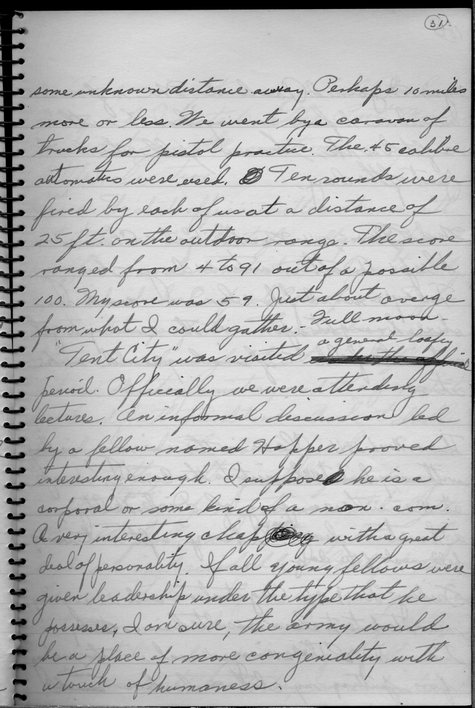 51.
some unknown distance away. Perhaps 10 miles
more or less. We went by a caravan of
trucks for pistol practice. The .45 calibre
automatics were used. Ten rounds were
fired by each of us at a distance of
25 ft. on the outdoor range. The score
ranged from 4 to 91 out of a possible
100. My score was 59. Just about average
from what I could gather. - Full moon -
"Tent City" was visited a general loafing
period. Officially we were attending
lectures. An informal discussion led
by a fellow named Happer proved
interesting enough. I suppose he is a
corporal or some kind of a non. com.
A very interesting chap with a great
deal of personality. If all young fellows were
given leadership under the type that he
possesses, I am sure, the army would
be a place of more congeniality with
a touch of humaness.